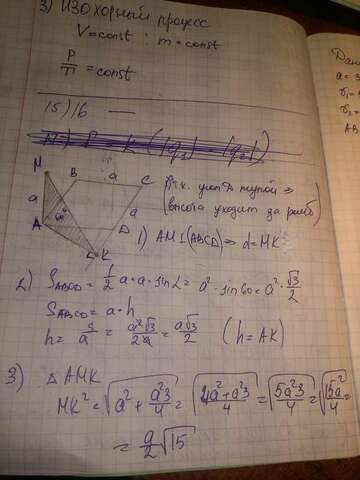 3) ИЗОХОРНЫЙ ПРОЦЕСС
V=const : m=const
P/T = const
15)16 —
M
B a C
a
60°
a
A
D
K
Т.к. угол D тупой ⇒
(высота уходит за ромб)
1) AM⊥(ABCD) ⇒ d=MK
2) S_ABCD = 1/2 a·a·sin L = a²·sin60 = a²·√3/2
S_ABCD = a·h
h = S/a = a²√3/2a = a√3/2 (h=AK)
3) △ AMK
MK² = √(a² + a²3/4) = √((4a²+a²3)/4) = √(5a²3/4) = √(15a²/4) =
= a/2 √15
Дан
a = 3
r₁ =
r₂ =
AB